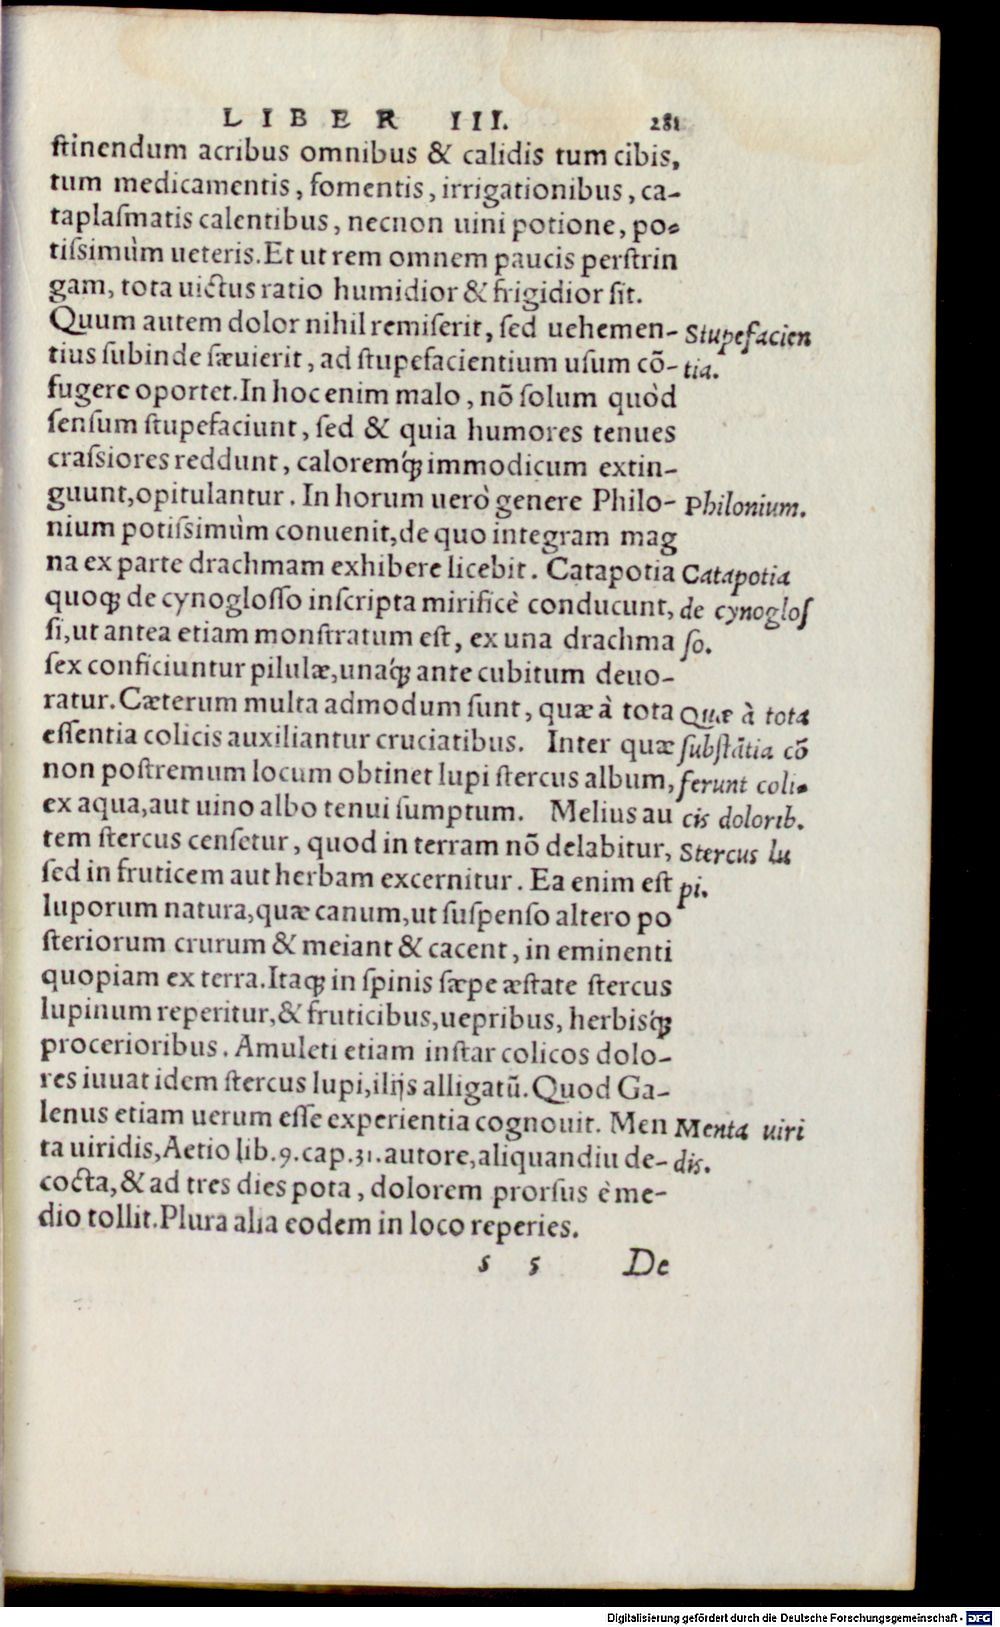 LIBER III. 281
ſtinendum acribus omnibus & calidis tum cibis,
tum medicamentis, fomentis, irrigationibus, ca-
taplaſmatis calentibus, necnon uini potione, po-
tiſsimùm ueteris. Et ut rem omnem paucis perſtrin
gam, tota uictus ratio humidior & frigidior ſit.
Quum autem dolor nihil remiſerit, ſed uehemen-
Stupefacien
tius ſubinde ſæuierit, ad ſtupefacientium uſum cõ-
tia.
fugere oportet. In hoc enim malo, nõ ſolum quòd
ſenſum ſtupefaciunt, ſed & quia humores tenues
craſsiores reddunt, caloremq́ꝫ immodicum extin-
guunt, opitulantur. In horum uerò genere Philo-
Philonium.
nium potiſsimùm conuenit, de quo integram mag
na ex parte drachmam exhibere licebit. Catapotia
Catapotia
quoqꝫ de cynogloſſo inſcripta mirificè conducunt,
de cynogloſ
ſi, ut antea etiam monſtratum eſt, ex una drachma
ſo.
ſex conficiuntur pilulæ, unaq́ꝫ ante cubitum deuo-
ratur. Cæterum multa admodum ſunt, quæ à tota
Quæ à tota
eſſentia colicis auxiliantur cruciatibus. Inter quæ
ſubſtãtia cõ
non poſtremum locum obtinet lupi ſtercus album,
ferunt coli-
ex aqua, aut uino albo tenui ſumptum. Melius au
cis dolorib.
tem ſtercus cenſetur, quod in terram nõ delabitur,
Stercus lu
ſed in fruticem aut herbam excernitur. Ea enim eſt
pi.
luporum natura, quæ canum, ut ſuſpenſo altero po
ſteriorum crurum & meiant & cacent, in eminenti
quopiam ex terra. Itaqꝫ in ſpinis ſæpe æſtate ſtercus
lupinum reperitur, & fruticibus, uepribus, herbisq́ꝫ
procerioribus. Amuleti etiam inſtar colicos dolo-
res iuuat idem ſtercus lupi, ilijs alligatũ. Quod Ga-
lenus etiam uerum eſſe experientia cognouit. Men
Menta uiri
ta uiridis, Aetio lib. 9. cap. 31. autore, aliquandiu de-
dis.
cocta, & ad tres dies pota, dolorem prorſus è me-
dio tollit. Plura alia eodem in loco reperies.
s 5 De
Digitalisierung gefördert durch die Deutsche Forschungsgemeinschaft - DFG